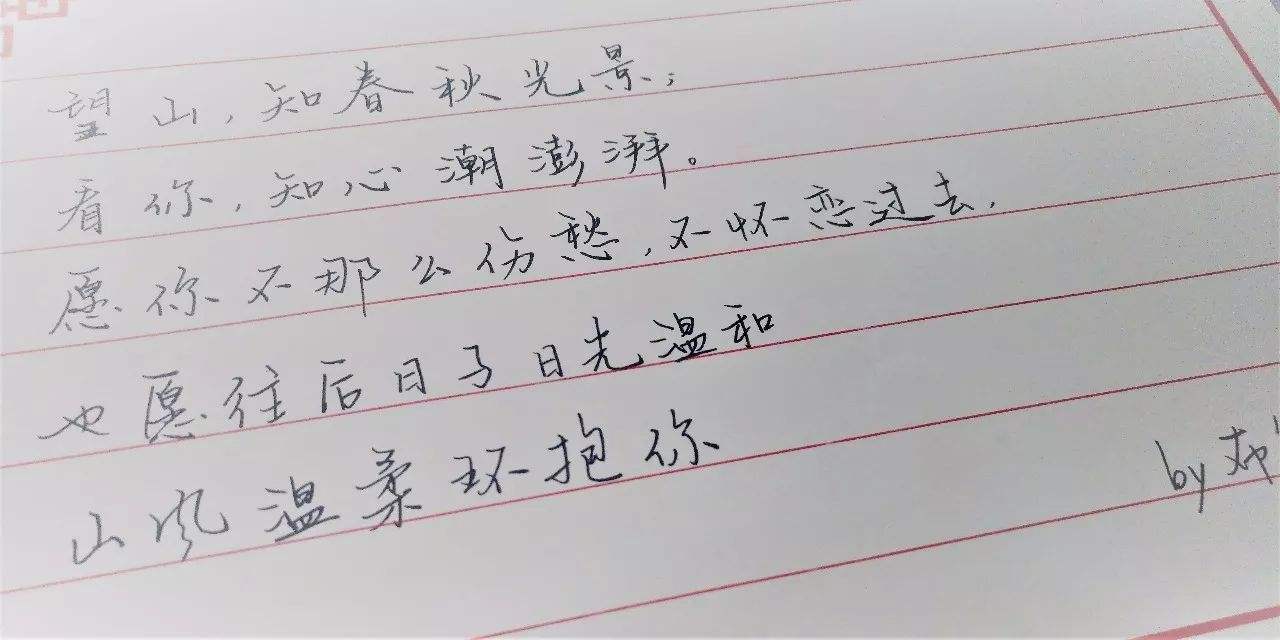 望山，知春秋光景；
看你，知心潮澎湃。
愿你不那么伤愁，不怀恋过去，
也愿往后日子日光温和
山风温柔环抱你
by